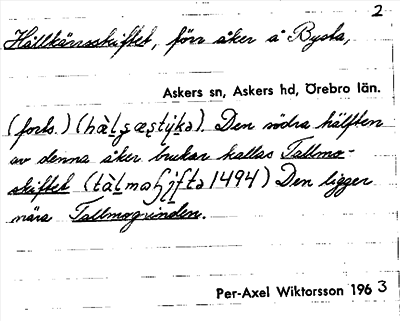 2
Hällkärrsskiftet, förr åker å Bysta,
Askers sn, Askers hd, Örebro län.
(forts.) (hàlʂæʂtýkə). Den södra hälften
av denna åker brukar kallas Tallmo-
skiftet (tàlmoʃiftə 1494) Den ligger
nära Tallmogrinden.
Per-Axel Wiktorsson 1963